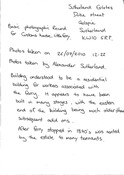 Sutherland Estates
Duke Street
Golspie
Sutherland
KW10 6RR
Basic photographic Record
for Cottland house, Littleferry.
Photos taken on 22/09/2010 12:22
Photos taken by Alexander Sutherland.
Building understood to be a residential
building for workers associated with
the ferry. It appears to have been
built in many stages, with the eastern
end of the building being much older than
subsequent add ons.
After ferry stopped in 1930's was rented
by the estate to many tennants.